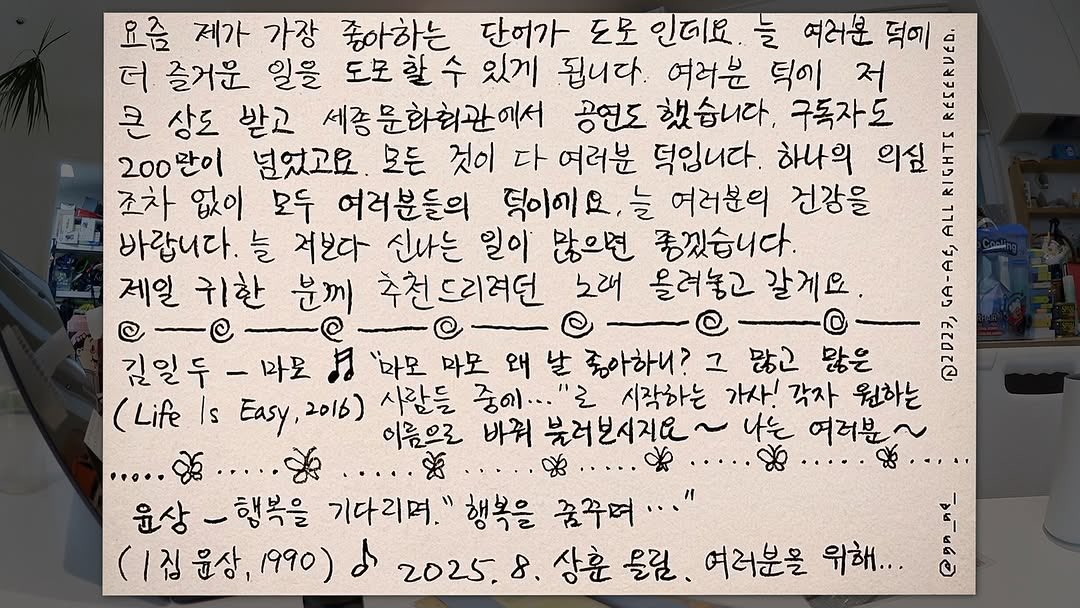 요즘 제가 가장 좋아하는 단어가 도모 인데요. 늘 여러분 덕에
더 즐거운 일을 도모 할 수 있게 됩니다. 여러분 덕에 저
큰 상도 받고 세종문화회관에서 공연도 했습니다. 구독자도
200만이 넘었고요. 모든 것이 다 여러분 덕입니다. 하나의 의심
조차 없이 모두 여러분들의 덕이에요. 늘 여러분의 건강을
바랍니다. 늘 저보다 신나는 일이 많으면 좋겠습니다.
제일 귀한 분께 추천드리려던 노래 올려놓고 갈게요.
김일두 – 마모 "마모 마모 왜 날 좋아하니? 그 많고 많은
(Life Is Easy, 2016) 사람들 중에..."로 시작하는 가사! 각자 원하는
이름으로 바꿔 불러보시지요~ 나는 여러분~
윤상 – 행복을 기다리며. "행복을 꿈꾸며..."
(1집 윤상, 1990) 2025. 8. 상훈 올림. 여러분을 위해...
ALL RIGHTS RESERVED.
Cooling